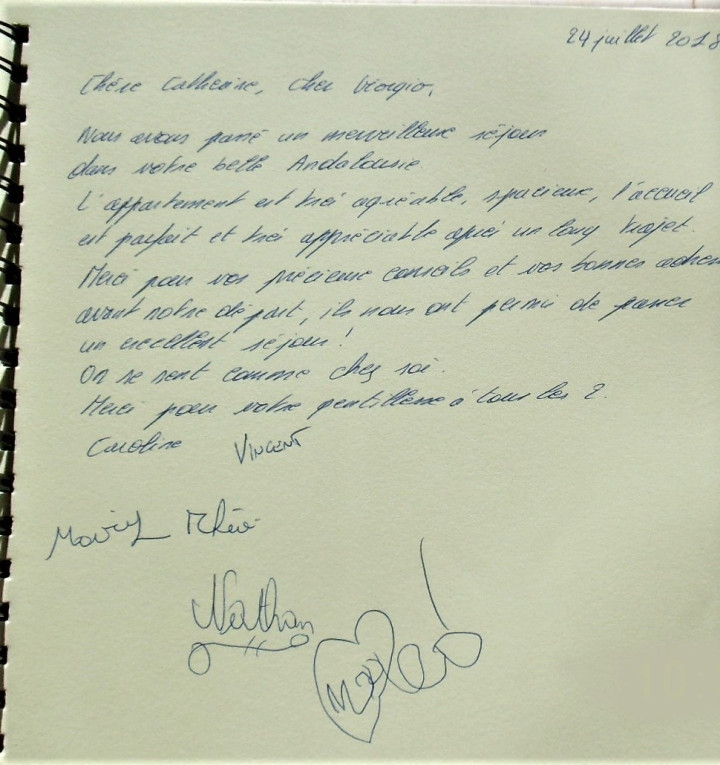 24 juillet 2018
Chère Catherine, cher Giorgio,
Nous avons passé un merveilleux séjour
dans votre belle Andalousie.
L'appartement est très agréable, spacieux, l'accueil
est parfait et très appréciable après un long trajet.
Merci pour vos précieux conseils et vos bonnes
avant notre départ, ils nous ont permis de passer
un excellent séjour !
On se sent comme chez soi.
Merci pour votre gentillesse à tous les 2.
Caroline VINCENT
Nathan